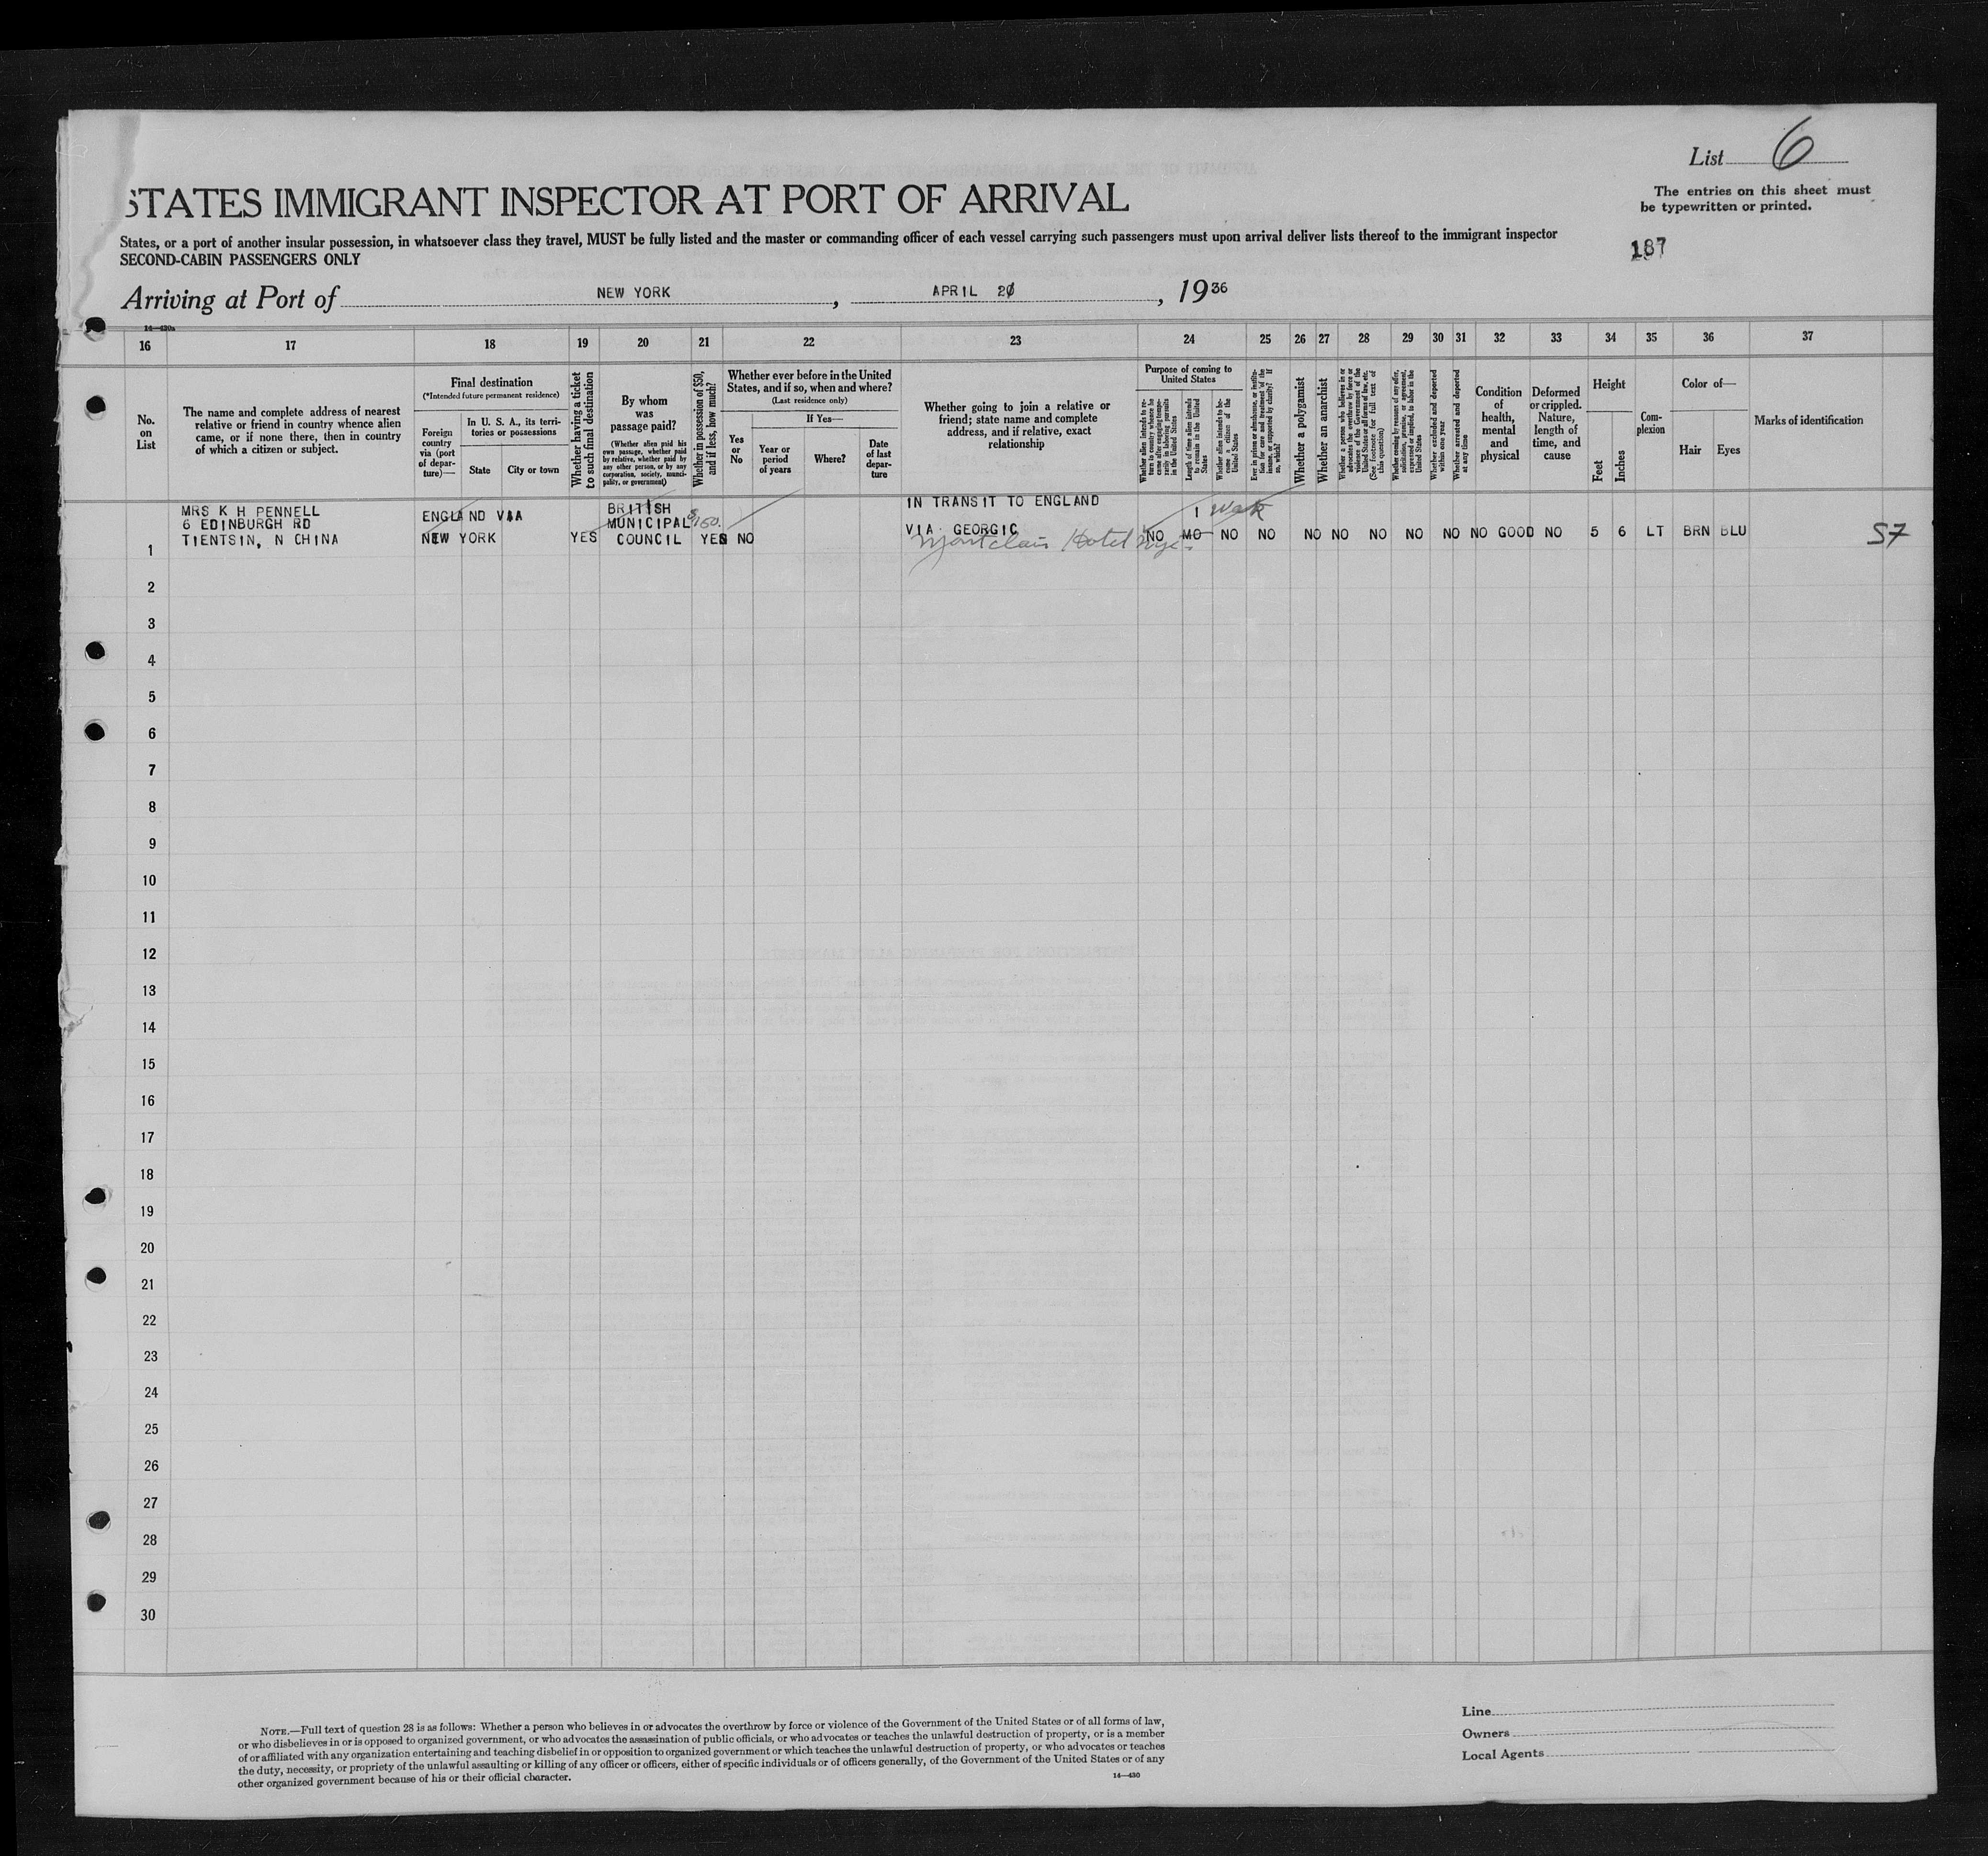 List 6
The entries on this sheet must
be typewritten or printed.
187
STATES IMMIGRANT INSPECTOR AT PORT OF ARRIVAL
States, or a port of another insular possession, in whatsoever class they travel, MUST be fully listed and the master or commanding officer of each vessel carrying such passengers must upon arrival deliver lists thereof to the immigrant inspector
SECOND-CABIN PASSENGERS ONLY
Arriving at Port of NEW YORK, APRIL 20, 1936
14—430a
16 17 18 19 20 21 22 23 24 25 26 27 28 29 30 31 32 33 34 35 36 37
No. on List
The name and complete address of nearest
relative or friend in country whence alien
came, or if none there, then in country
of which a citizen or subject.
Final destination
(*Intended future permanent residence)
Foreign country via (port of departure)—
In U. S. A., its territories or possessions
State
City or town
Whether having a ticket to such final destination
By whom was passage paid?
(Whether alien paid his own passage, whether paid by relative, whether paid by any other person, or by any corporation, society, municipality, or government)
Whether in possession of $50, and if less, how much?
Whether ever before in the United
States, and if so, when and where?
(Last residence only)
Yes or No
If Yes—
Year or period of years
Where?
Date of last departure
Whether going to join a relative or
friend; state name and complete
address, and if relative, exact
relationship
Purpose of coming to United States
Whether alien intends to return to country whence he came after engaging temporarily in laboring pursuits in the United States
Length of time alien intends to remain in the United States
Whether alien intends to become a citizen of the United States
Ever in prison or almshouse, or institution for care and treatment of the insane, or supported by charity? If so, which?
Whether a polygamist
Whether an anarchist
Whether a person who believes in or advocates the overthrow by force or violence of the Government of the United States or all forms of law, etc. (See footnote for full text of this question)
Whether coming by reasons of any offer, solicitation, promise, or agreement, expressed or implied, to labor in the United States
Whether excluded and deported within one year
Whether arrested and deported at any time
Condition of health, mental and physical
Deformed or crippled. Nature, length of time, and cause
Height
Feet
Inches
Complexion
Color of—
Hair
Eyes
Marks of identification
MRS K H PENNELL
6 EDINBURGH RD
TIENTSIN, N CHINA
ENGLAND VIA
NEW YORK
YES
BRITISH
MUNICIPAL
COUNCIL
$150.
YES NO
IN TRANSIT TO ENGLAND
VIA GEORGIC
Montclair Hotel Nyc.
1 week
NO MO NO NO NO NO NO NO NO NO GOOD NO 5 6 LT BRN BLU
57
1
2
3
4
5
6
7
8
9
10
11
12
13
14
15
16
17
18
19
20
21
22
23
24
25
26
27
28
29
30
NOTE.—Full text of question 28 is as follows: Whether a person who believes in or advocates the overthrow by force or violence of the Government of the United States or of all forms of law,
or who disbelieves in or is opposed to organized government, or who advocates the assassination of public officials, or who advocates or teaches the unlawful destruction of property, or is a member
of or affiliated with any organization entertaining and teaching disbelief in or opposition to organized government or which teaches the unlawful destruction of property, or who advocates or teaches
the duty, necessity, or propriety of the unlawful assaulting or killing of any officer or officers, either of specific individuals or of officers generally, of the Government of the United States or of any
other organized government because of his or their official character.
14—430
Line
Owners
Local Agents